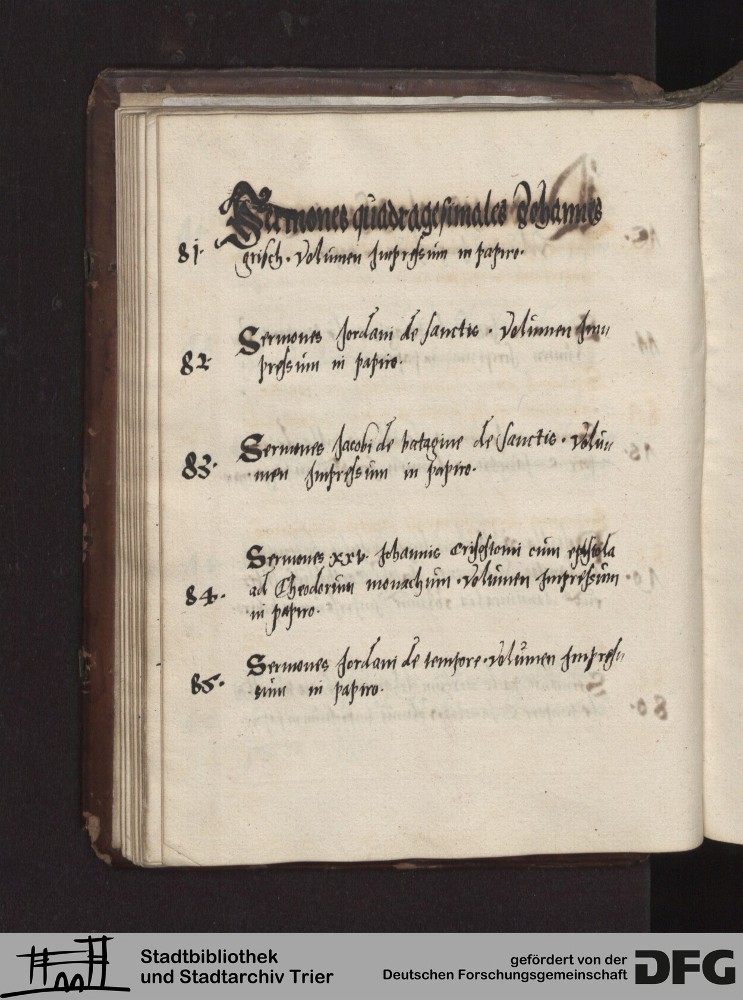 Sermones quadragesimales Johannis
81. grisch. Volumen Impressum in papiro.
Sermones Jordani de sanctis. Volumen Im„
82. pressum in papiro.
Sermones Jacobi de vatagine de Sanctis. Volu„
83. men Impressum in papiro.
Sermones xxv Johannis Crisostomi cum epistola
84. ad Theodorum monachum. Volumen Impressum
in papiro.
Sermones Jordani de tempore. Volumen Impres„
85. sum in papiro.
Stadtbibliothek
und Stadtarchiv Trier
gefördert von der
Deutschen Forschungsgemeinschaft
DFG